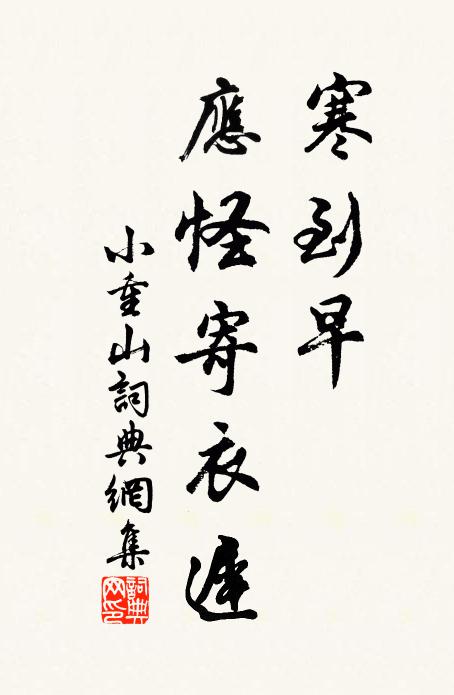 寒到早
應怪寄衣遲
小重山詞典網集
詞典网印